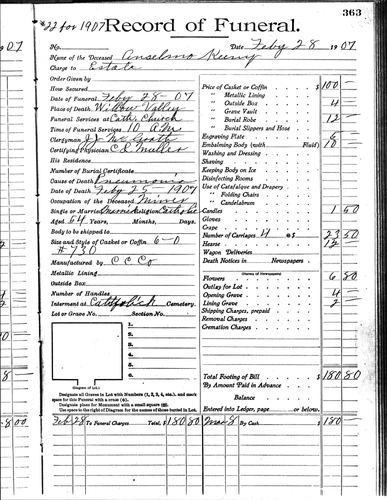 363
#22 for 1907 Record of Funeral.
No. Date Feby 28 1907
Name of the Deceased Anselmo
Charge to Estate
Order Given by
How Secured
Date of Funeral Feby 28 - 07
Place of Willow Valley
Funeral Services at Cath. Church
Time of Funeral Services 10 A.M.
Clergyman
Certifying Physician
His Residence
Number of Burial Certificate
Cause of Death Pneumonia
Date of Death Feby 25 - 1907
Occupation of the Deceased Miner
Single or Married Married Religion Catholic
Aged 54 Years, Months, Days.
Body to be shipped to
Size and Style of Casket or Coffin 6-0
#730
Manufactured by C C Co
Metallic Lining
Outside Box
Number of Handles
Interment at Catholick Cemetery.
Lot or Grave No. Section No.
1.
2.
3.
4.
5.
6.
(Diagram of Lot.)
Designate all Graves in Lot with Numbers (1, 2, 3, 4, etc.). and mark
space for this Funeral with a cross (x).
Designate place for Monument with a small square (□).
Use space to the right of Diagram for the names of those buried in Lot.
Price of Casket or Coffin $ 100
" Metallic Lining
" Outside Box 4
" Grave Vault
" Burial Robe 12
" Burial Slippers and Hose
Engraving Plate
Embalming Body (with Fluid) 10
Washing and Dressing
Shaving
Keeping Body on Ice
Disinfecting Rooms
Use of Catafalque and Drapery
" Folding Chairs
" Candelabrum
Candles 1 50
Gloves
Crape
Number of Carriages 4 @ $ 23 50
Hearse 12
Wagon Deliveries
Death Notices in Newspapers
(Names of Newspapers)
Flowers 6 80
Outlay for Lot
Opening Grave 4
Lining Grave 2
Shipping Charges, prepaid
Removal Charges
Cremation Charges
Total Footing of Bill $ 180 80
By Amount Paid in Advance
Balance
Entered into Ledger, page or below.
Feb 28 To Funeral Charges Total, $ 180 80 Mar 8 By Cash $ 180